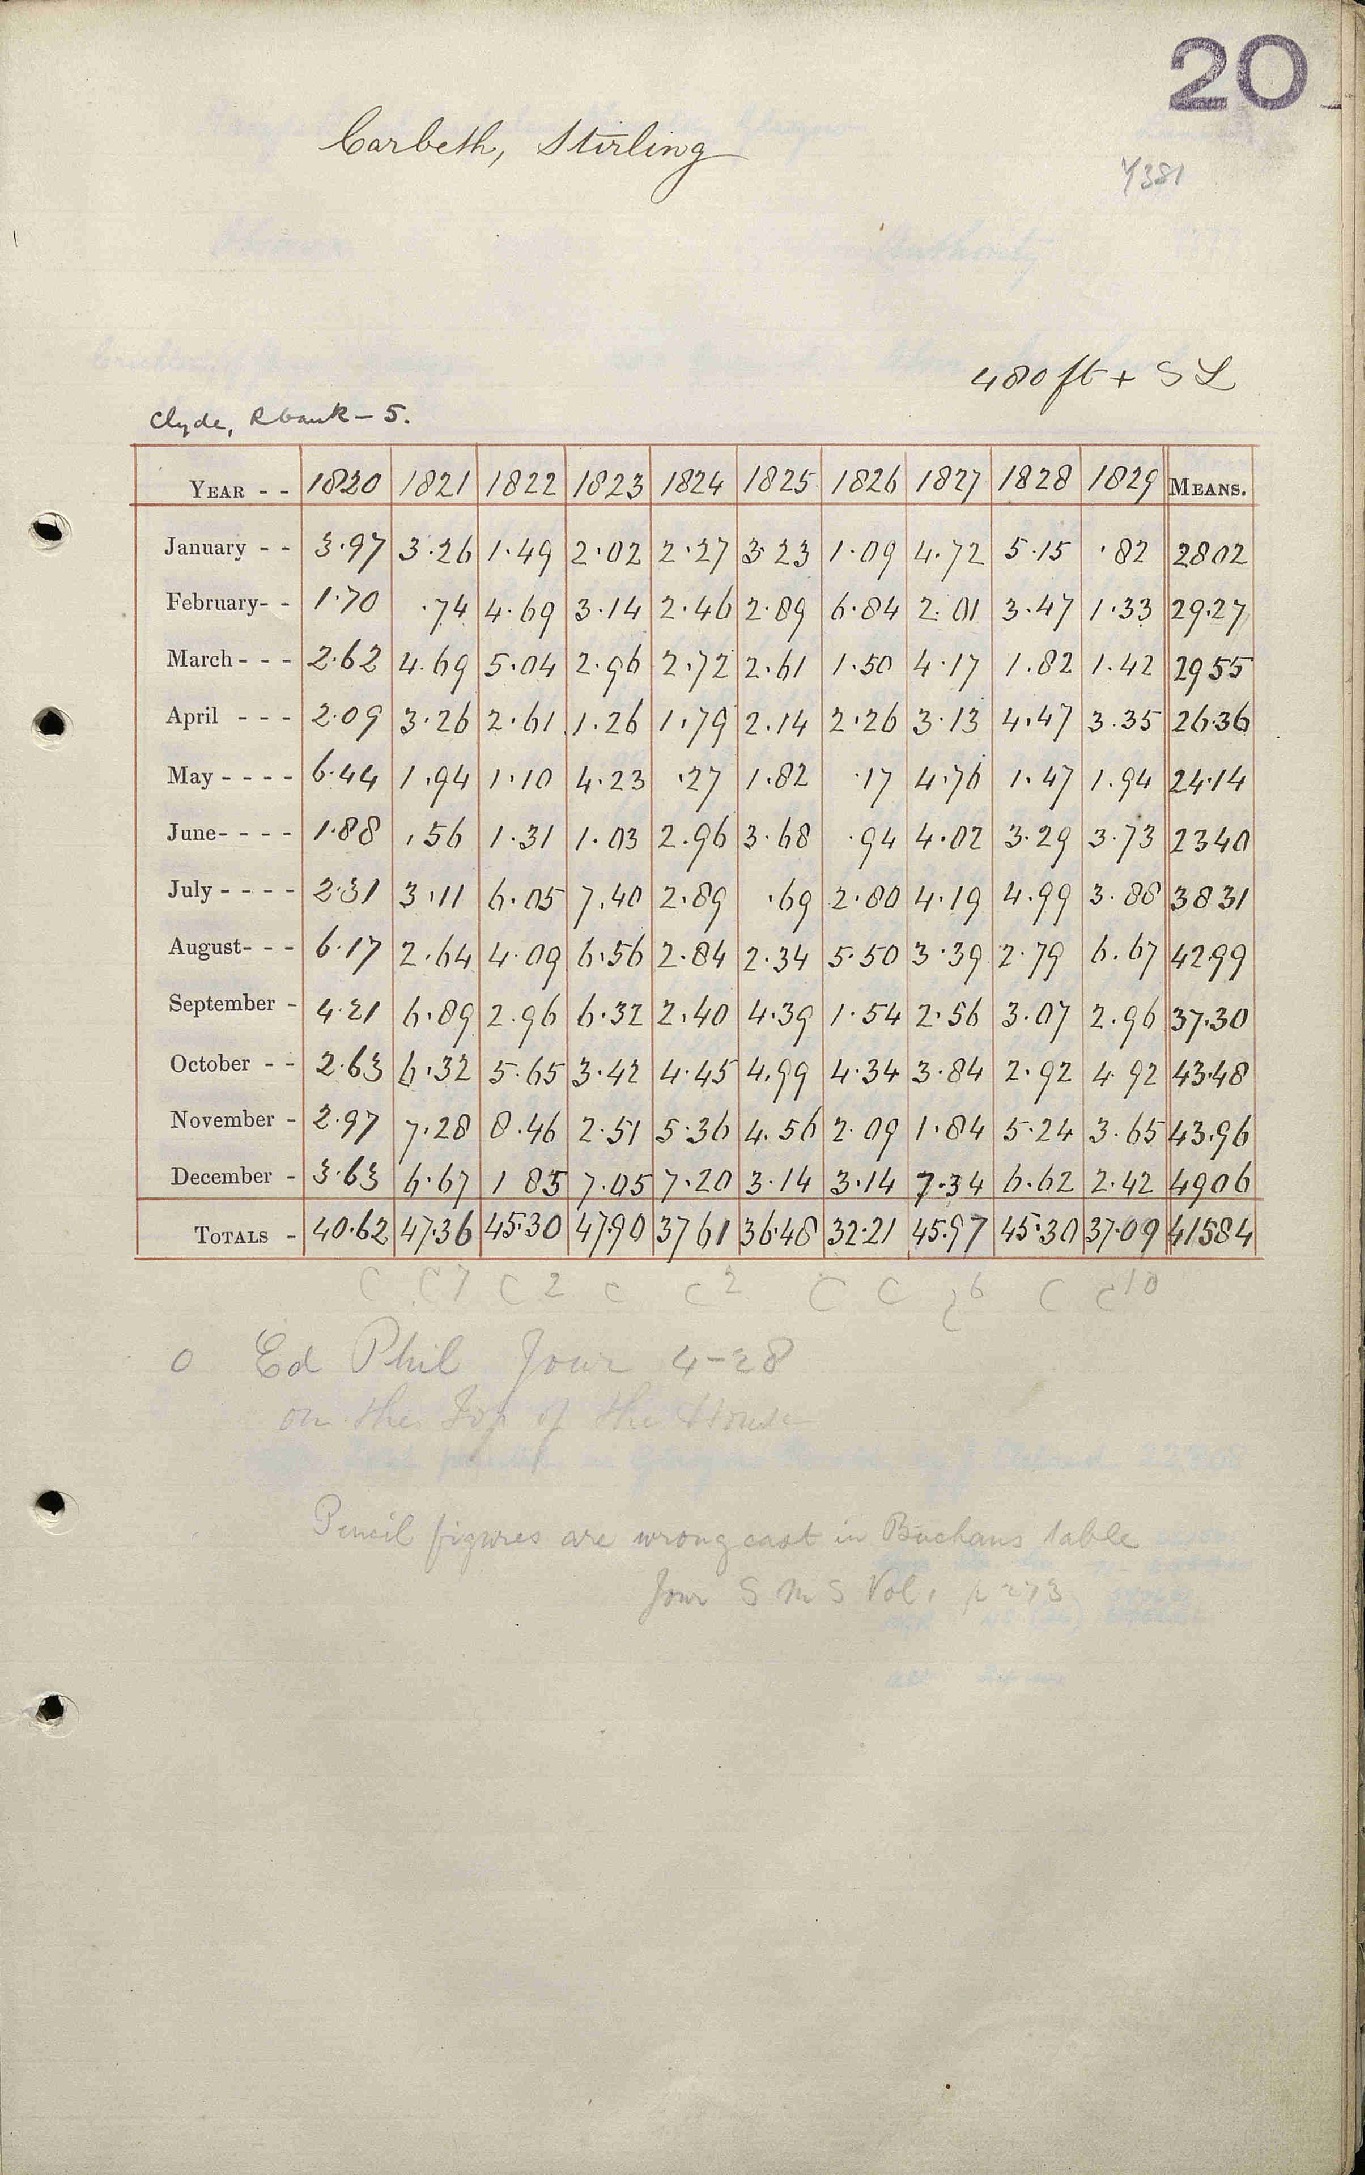 20
Carbeth, Stirling
Y381
480 ft + S L
Clyde, R bank - 5.
YEAR - - 1820 1821 1822 1823 1824 1825 1826 1827 1828 1829 MEANS.
January - - 3.97 3.26 1.49 2.02 2.27 3.23 1.09 4.72 5.15 .82 2802
February- - 1.70 .74 4.69 3.14 2.46 2.89 6.84 2.01 3.47 1.33 29.27
March - - - 2.62 4.69 5.04 2.96 2.72 2.61 1.50 4.17 1.82 1.42 2955
April - - - 2.09 3.26 2.61 1.26 1.79 2.14 2.26 3.13 4.47 3.35 26.36
May - - - - 6.44 1.94 1.10 4.23 .27 1.82 .17 4.76 1.47 1.94 24.14
June- - - - 1.88 .56 1.31 1.03 2.96 3.68 .94 4.02 3.29 3.73 2340
July - - - - 2.31 3.11 6.05 7.40 2.89 .69 2.80 4.19 4.99 3.88 3831
August- - - 6.17 2.64 4.09 6.56 2.84 2.34 5.50 3.39 2.79 6.67 4299
September - 4.21 6.89 2.96 6.32 2.40 4.39 1.54 2.56 3.07 2.96 37.30
October - - 2.63 6.32 5.65 3.42 4.45 4.99 4.34 3.84 2.92 4.92 43.48
November - 2.97 7.28 8.46 2.51 5.36 4.56 2.09 1.84 5.24 3.65 43.96
December - 3.63 6.67 1 85 7.05 7.20 3.14 3.14 7.34 6.62 2.42 4906
TOTALS - 40.62 47.36 45.30 47.90 37 61 36.48 32.21 45.97 45.30 37.09 41584
C C7 C2 C C2 C C C6 C C10
0 Ed Phil Jour 4-28
on the Top of the House
Pencil figures are wrong cast in Buchans table
Jour S M S Vol 1 p 273